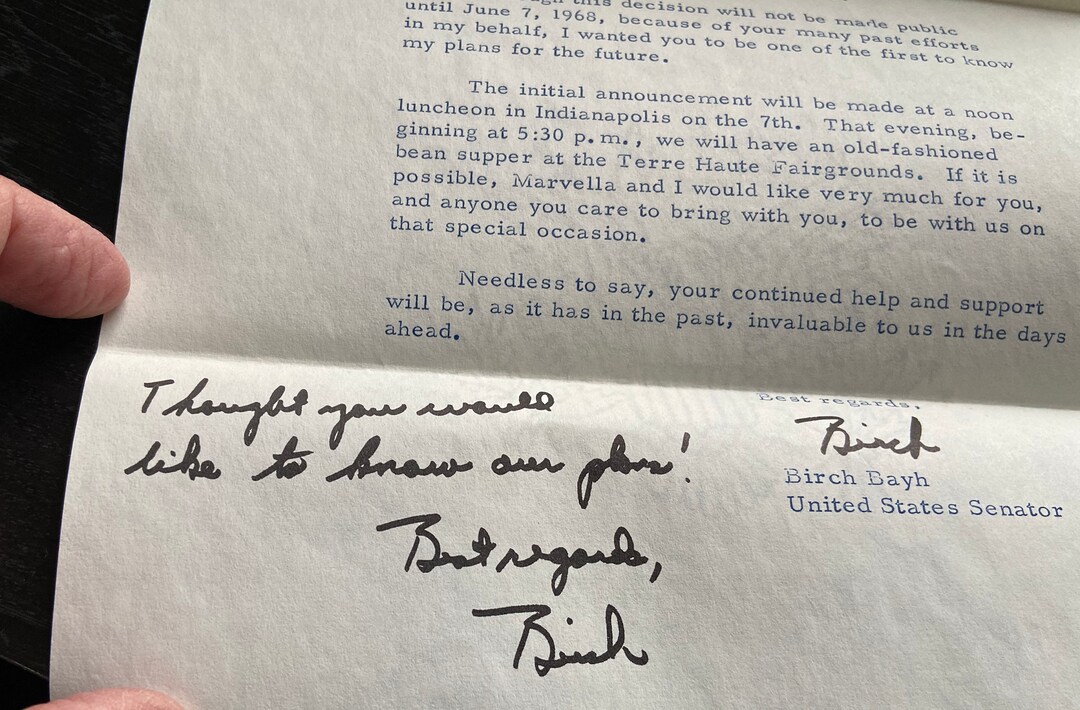 this decision will not be made public
until June 7, 1968, because of your many past efforts
in my behalf, I wanted you to be one of the first to know
my plans for the future.
The initial announcement will be made at a noon
luncheon in Indianapolis on the 7th. That evening, be-
ginning at 5:30 p.m., we will have an old-fashioned
bean supper at the Terre Haute Fairgrounds. If it is
possible, Marvella and I would like very much for you,
and anyone you care to bring with you, to be with us on
that special occasion.
Needless to say, your continued help and support
will be, as it has in the past, invaluable to us in the days
ahead.
Best regards,
Birch
Birch Bayh
United States Senator
Thought you would
like to know our plans!
Best regards,
Birch